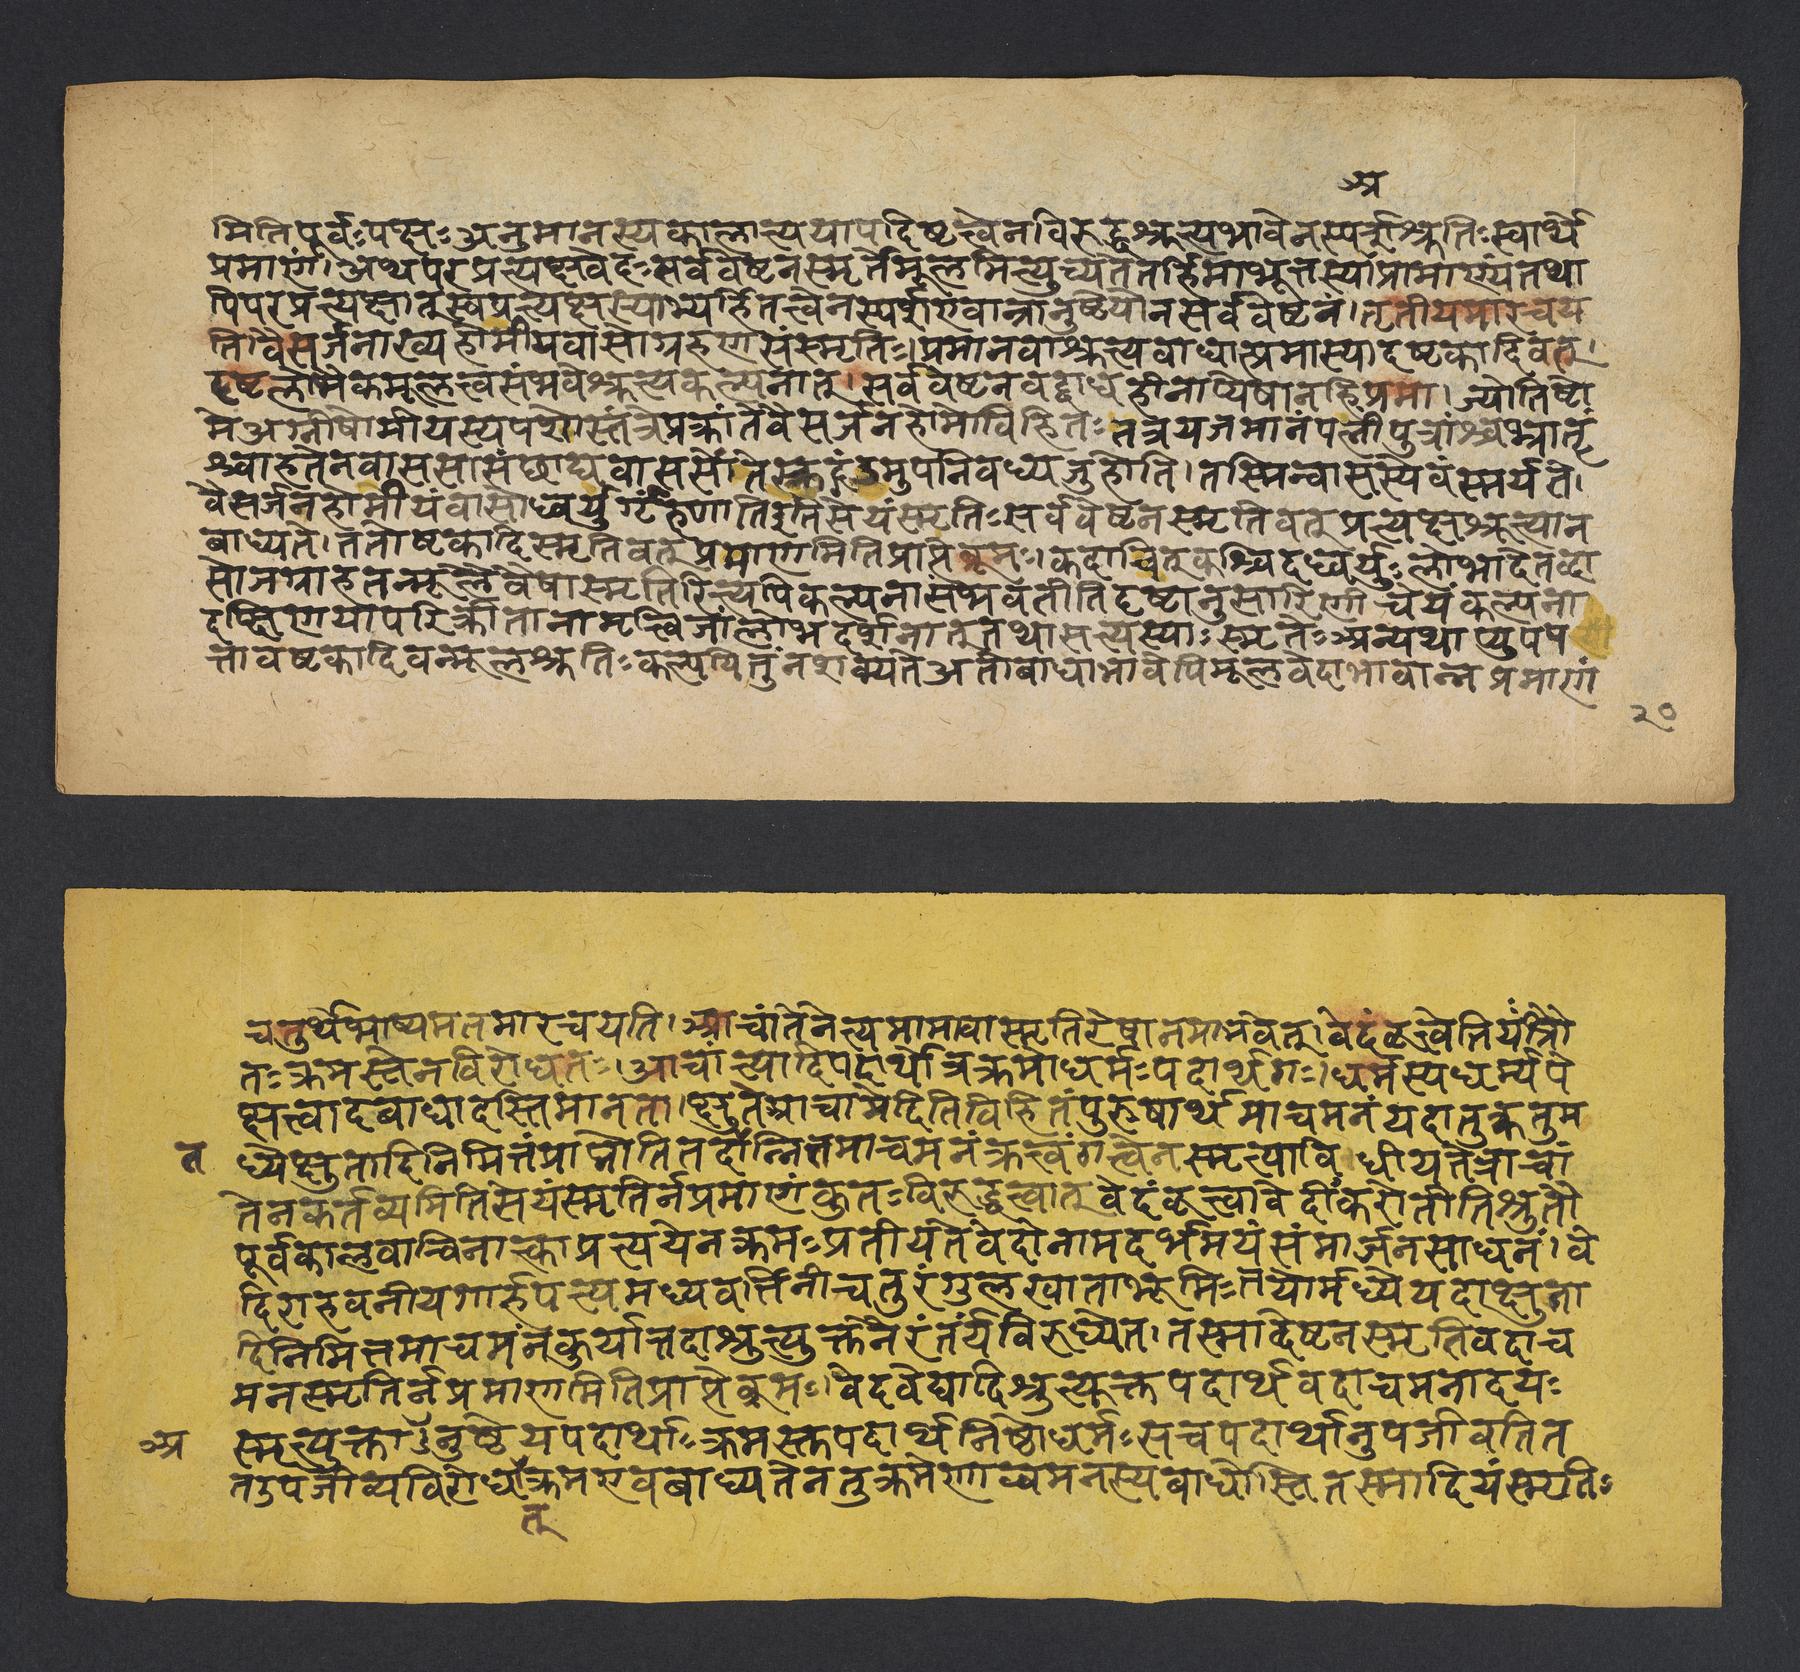 अ
मितिपूर्वःपक्षःअनुमानस्यकालात्ययापदिष्टत्वेनविरुद्धश्रुत्यभावेनस्पर्शश्रुतिःस्वार्थे
प्रमाणं।अथपरप्रत्यक्षवेदःसर्ववेष्टनस्मृतेर्मूलमित्युच्यतेतर्हिमाभूत्तस्याप्रामाण्यंतथा
पिपरप्रत्यक्षातुस्वप्रत्यक्षस्याभ्यर्हितत्वेनस्पर्शएवान्नानुष्ठेयोनसर्ववेष्टनं।तृतीयमारचय
ति।वैसर्जनाख्यहोमीयवासोग्रहणसंस्मृतिः।प्रमानवाश्रुत्यबाधात्प्रमास्यादष्टकादिवत्।
दृष्टलोभैकमूलत्वसंभवेश्रुत्यकल्पनात्।सर्ववेष्टनवद्बाधहीनाप्येषानहिप्रमा।ज्योतिष्टो
मेअग्नीषोमीयस्यपशोस्तंत्रप्रक्रांतेवैसर्जनहोमोविहितःतत्रयजमानंपत्नींपुत्रांश्चभ्रातॄं
श्चाहतेनवाससासंछाद्यवाससोंतेस्रुग्दंडमुपनिबध्यजुहोति।तस्मिन्वासस्येवंस्मर्यते।
वैसर्जनहोमीयंवासोध्वर्युर्गृह्णातिइतिसेयंस्मृतिःसर्ववेष्टनस्मृतिवत्प्रत्यक्षश्रुत्यान
बाध्यते।ततोष्टकादिस्मृतिवत्प्रमाणमितिप्राप्तेब्रूमः।कदाचित्कश्चिदध्वर्युःलोभादेतद्वा
सोजग्राहतन्मूलैवैषास्मृतिरित्यपिकल्पनासंभवतीतिदृष्टानुसारिणीचेयंकल्पना
दक्षिणयापरिक्रीतानामृत्विजांलोभदर्शनात्तथासत्यस्याःस्मृतेःअन्यथाप्युपप
त्तावष्टकादिवन्मूलश्रुतिःकल्पयितुंनशक्यतेअतोबाधाभावेपिमूलवेदाभावान्नप्रमाणं
२०
चतुर्थेभाष्यमतमारचयति।आचांतेनेत्यमामावास्मृतिरेषानमाभवेत्।वेदंकृत्वेतियःश्रौ
तःक्रमस्तेनविरोधतः।आचांत्यादिपदार्थोत्रक्रमोधर्मःपदार्थगः।धर्मस्यधर्म्यपे
क्षत्वादबाधादस्तिमानता।क्षुतेआचामेदितिविहितंपुरुषार्थमाचमनंयदातुक्रतुम
त ध्येक्षुतादिनिमित्तंप्राप्नोतितदान्निमित्तमाचमनंक्रत्वंगत्वेनस्मृत्याविधीयतेआचां
तेनकर्तव्यमितिसेयंस्मृतिर्नप्रमाणंकुतःविरुद्धत्वात्वेदंकृत्वावेदींकरोतीतिश्रुतौ
पूर्वकालवाचिनात्काप्रत्ययेनक्रमःप्रतीयतेवेदोनामदर्भमयंसंमार्जनसाधनं।वे
दिराहवनीयगार्हपत्यमध्यवर्त्तिनीचतुरंगुलखाताभूमिःतयोर्मध्येयदाक्षुता
दिनिमित्तमाचमंनकुर्यात्तदाश्रुत्युक्तनैरंतर्यंविरुध्येत।तस्माद्वेष्टनस्मृतिवदाच
मनस्मृतिर्नप्रमाणमितिप्राप्तेब्रूमः।वेदवेद्यादिश्रुत्युक्तपदार्थवदाचमनादयः
अ स्मृत्युक्ताऽनुष्ठेयपदार्थाःक्रमस्तुपदार्थनिष्ठोधर्मःसचपदार्थानुपजीवतित
तउपजीव्यविरोधाक्रमएवबाध्यतेनतुक्रमेणाचमनस्यबाधोस्तितस्मादियंस्मृतिः
त्